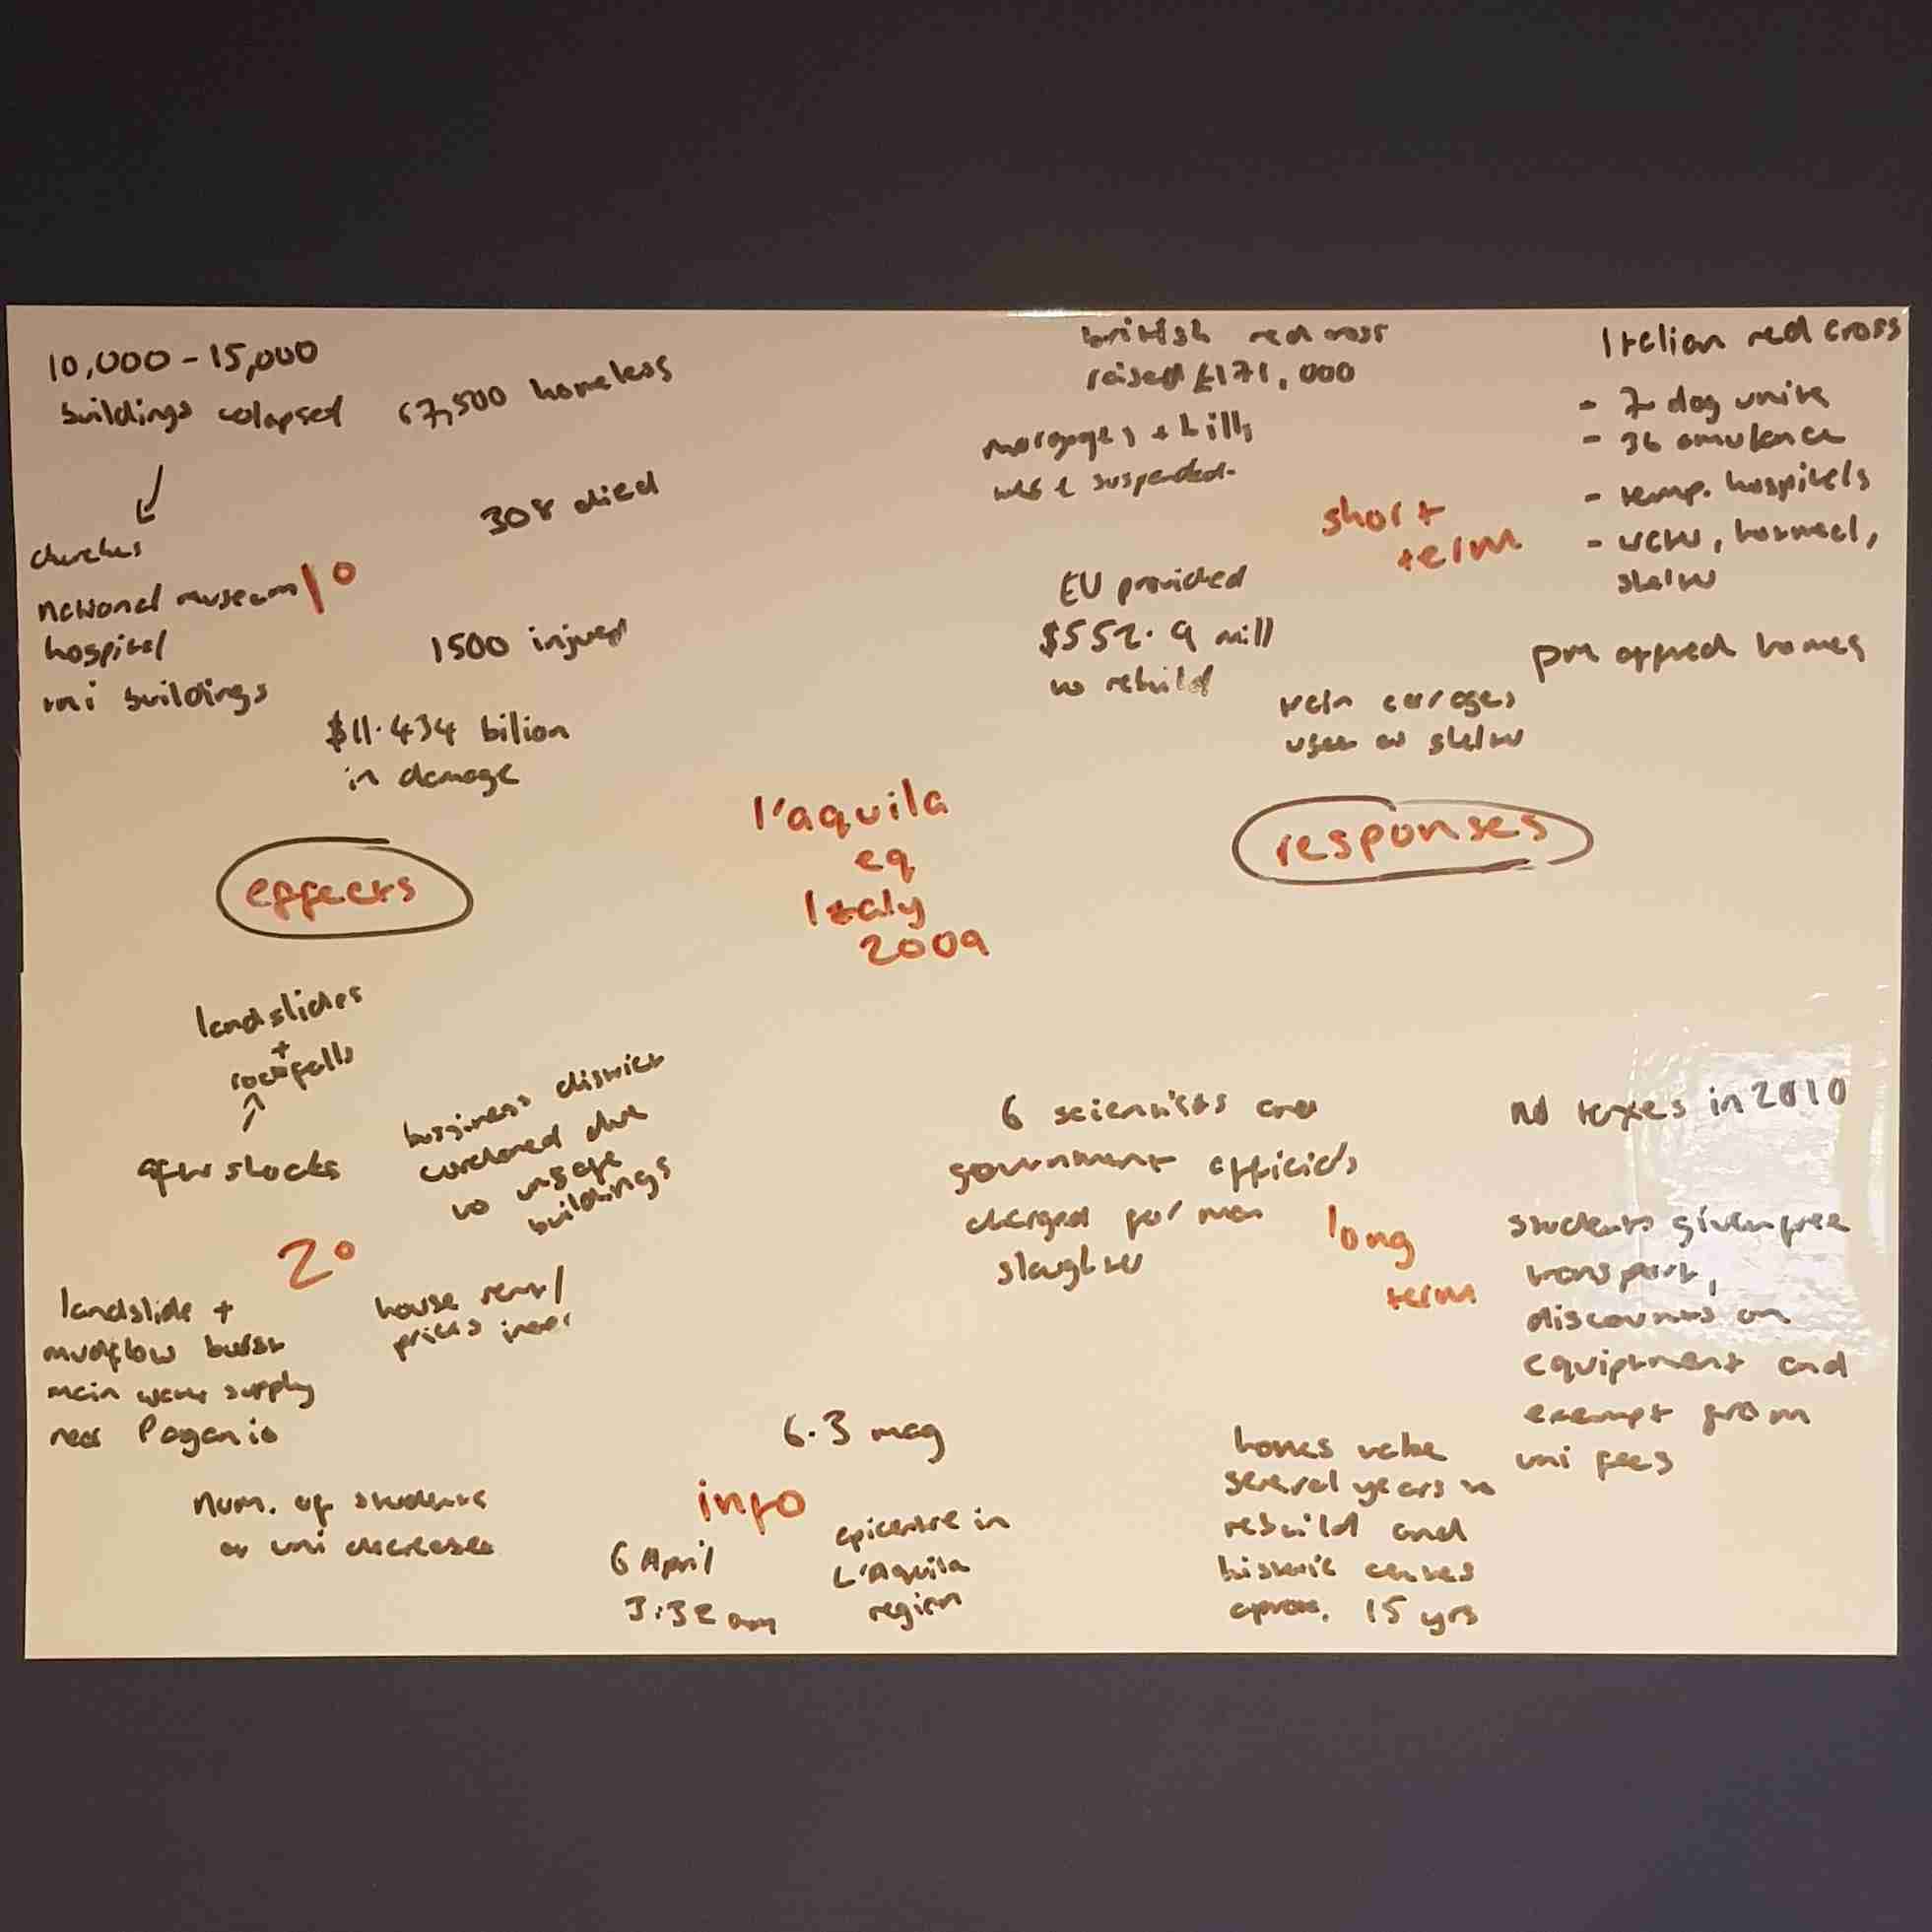 10,000 - 15,000
buildings colapsed
67,500 homeless
308 died
churches
national museum
hospital
uni buildings
1°
1500 injured
$11.434 bilion
in damage
effects
landslides
+
rockfalls
after shocks
bussiness district
due
to unsafe
buildings
2°
landslide +
mudflow burst
main water supply
near Paganio
house rent/
prices incr
num. of students
at uni decreases
l'aquila
eq
Italy
2009
6.3 mag
info
6 April
3:32 am
epicentre in
L'Aquila
region
british red cross
raised £171,000
morgages + bills
were suspended.
short
term
EU provided
$552.9 mill
to rebuild
Italian red cross
- 7 dog units
- 36 amulance
- temp. hospitals
- water,
shelter
pm offred homes
train carrages
used as shelter
responses
6 scientists and
government officials
charged for man
slaughter
long
term
no taxes in 2010
students given free
transport,
discounts on
equiptment and
exempt from
uni fees
homes take
several years to
rebuild and
historic centres
aprox. 15 yrs